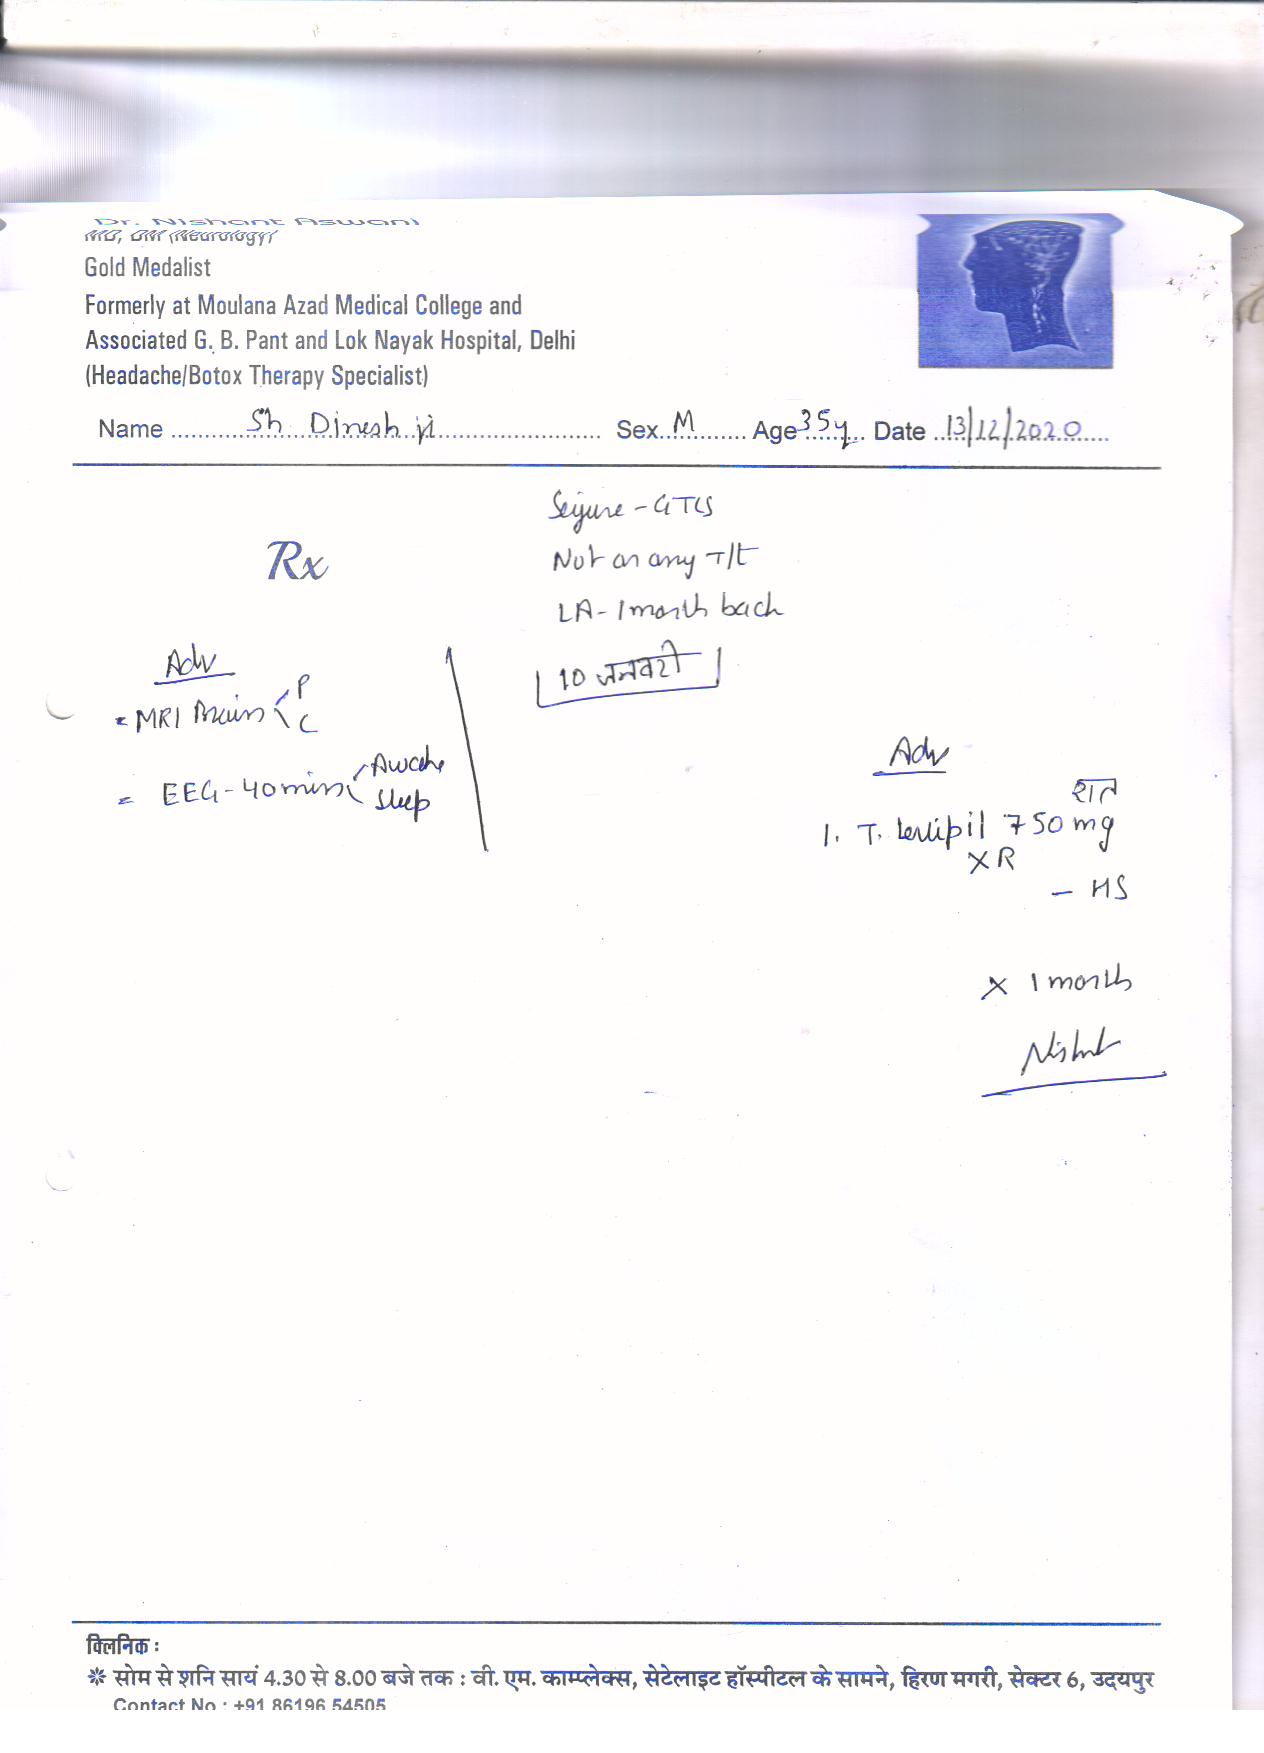 Dr. Nishant Aswani
MD, DM (Neurology)
Gold Medalist
Formerly at Moulana Azad Medical College and
Associated G. B. Pant and Lok Nayak Hospital, Delhi
(Headache/Botox Therapy Specialist)
Name Sh Dinesh ji Sex M Age 35y Date 13/12/2020
Seizure - GTCS
Rx
Not on any T/t
LA - 1 month back
10 जनवरी
Adv
MRI Brain P
C
EEG - 40 mins Awake
Sleep
Adv
रात
1. T. Levipil 750 mg
XR
- HS
x 1 month
Nishant
क्लिनिक :
❋ सोम से शनि सायं 4.30 से 8.00 बजे तक : वी. एम. काम्प्लेक्स, सेटेलाइट हॉस्पीटल के सामने, हिरण मगरी, सेक्टर 6, उदयपुर
Contact No : +91 86196 54505